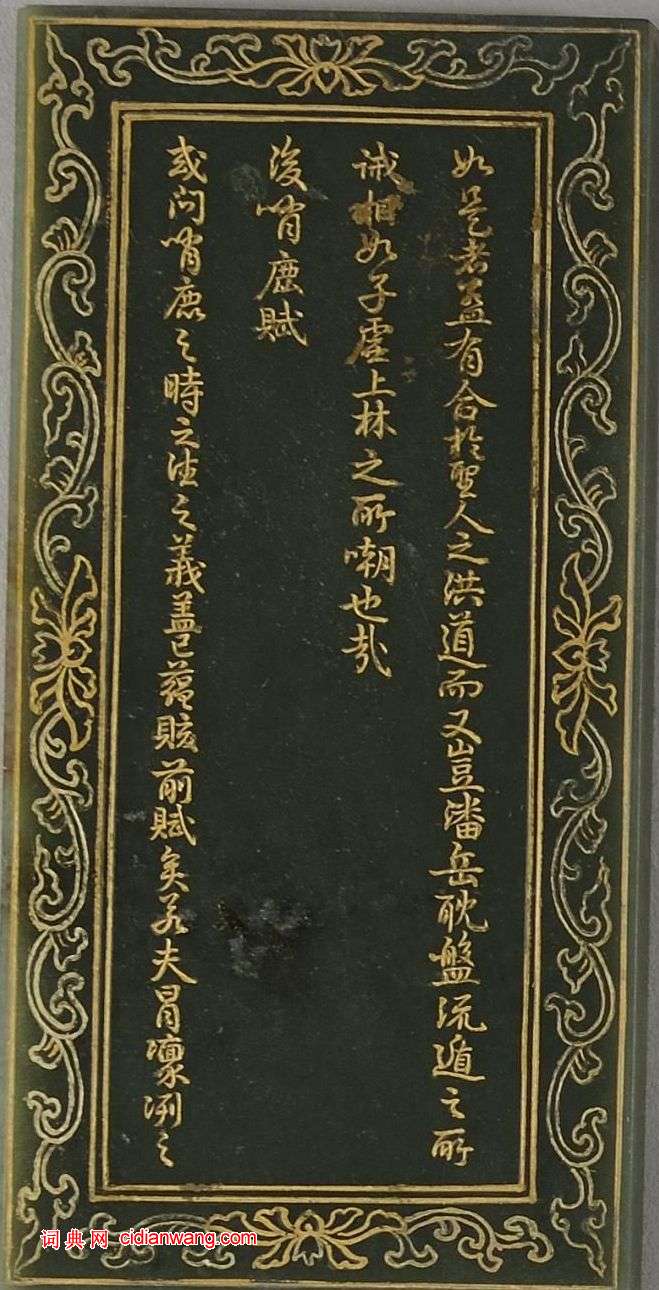 如是者盖有合於聖人之洪道而又豈潘岳耽盤流遁之所
誡相如子虛上林之所嘲也哉
後哨鹿賦
或问哨鹿之時之法之義盖已蘊賅前賦矣若夫冒凛冽之
词典网 cidianwang.com